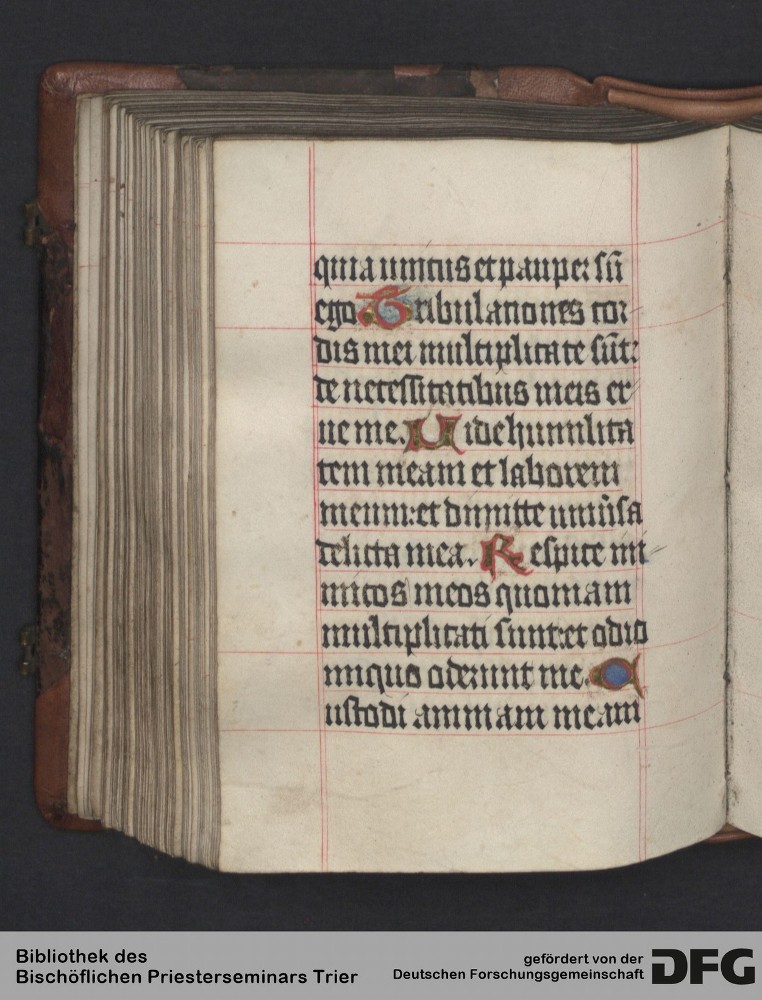 quia unicus et pauper sū
ego Tribulationes cor
dis mei multiplicate sūt:
de necessitatibus meis er
ue me. Vide humilita
tem meam et laborem
meum: et dimitte uniūsa
delicta mea. Respice ini
micos meos quoniam
multiplicati sunt: et odio
iniquo oderunt me. C
ustodi animam meam
Bibliothek des
Bischöflichen Priesterseminars Trier
gefördert von der
Deutschen Forschungsgemeinschaft
DFG